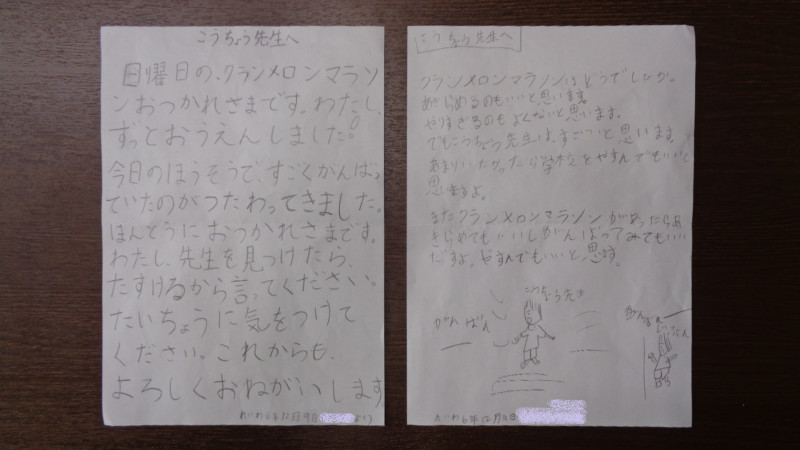 こうちょう先生へ
日曜日の、クランメロンマラソ
ンおつかれさまです。わたし、
ずっとおうえんしました。
今日のほうそうで、すごくがんばっ
ていたのがつたわってきました。
ほんとうにおつかれさまです。
わたし、先生を見つけたら、
たすけるから言ってください。
たいちょうに気をつけて
ください。これからも、
よろしくおねがいします
れいわ6年12月
より
こうちょう先生へ
クランメロンマラソンはどうでしたか。
あきらめるのもいいと思います。
やりすぎるのもよくないと思います。
でもこうちょう先生は、すごいと思います。
あまりいたかったら学校をやすんでもいいと
思いますよ。
またクランメロンマラソンがあったらあ
きらめてもいいしがんばってみてもいい
だすよ。やすんでもいいと、思います。
こうちょう先生
がんばれ
れいわ6年12月